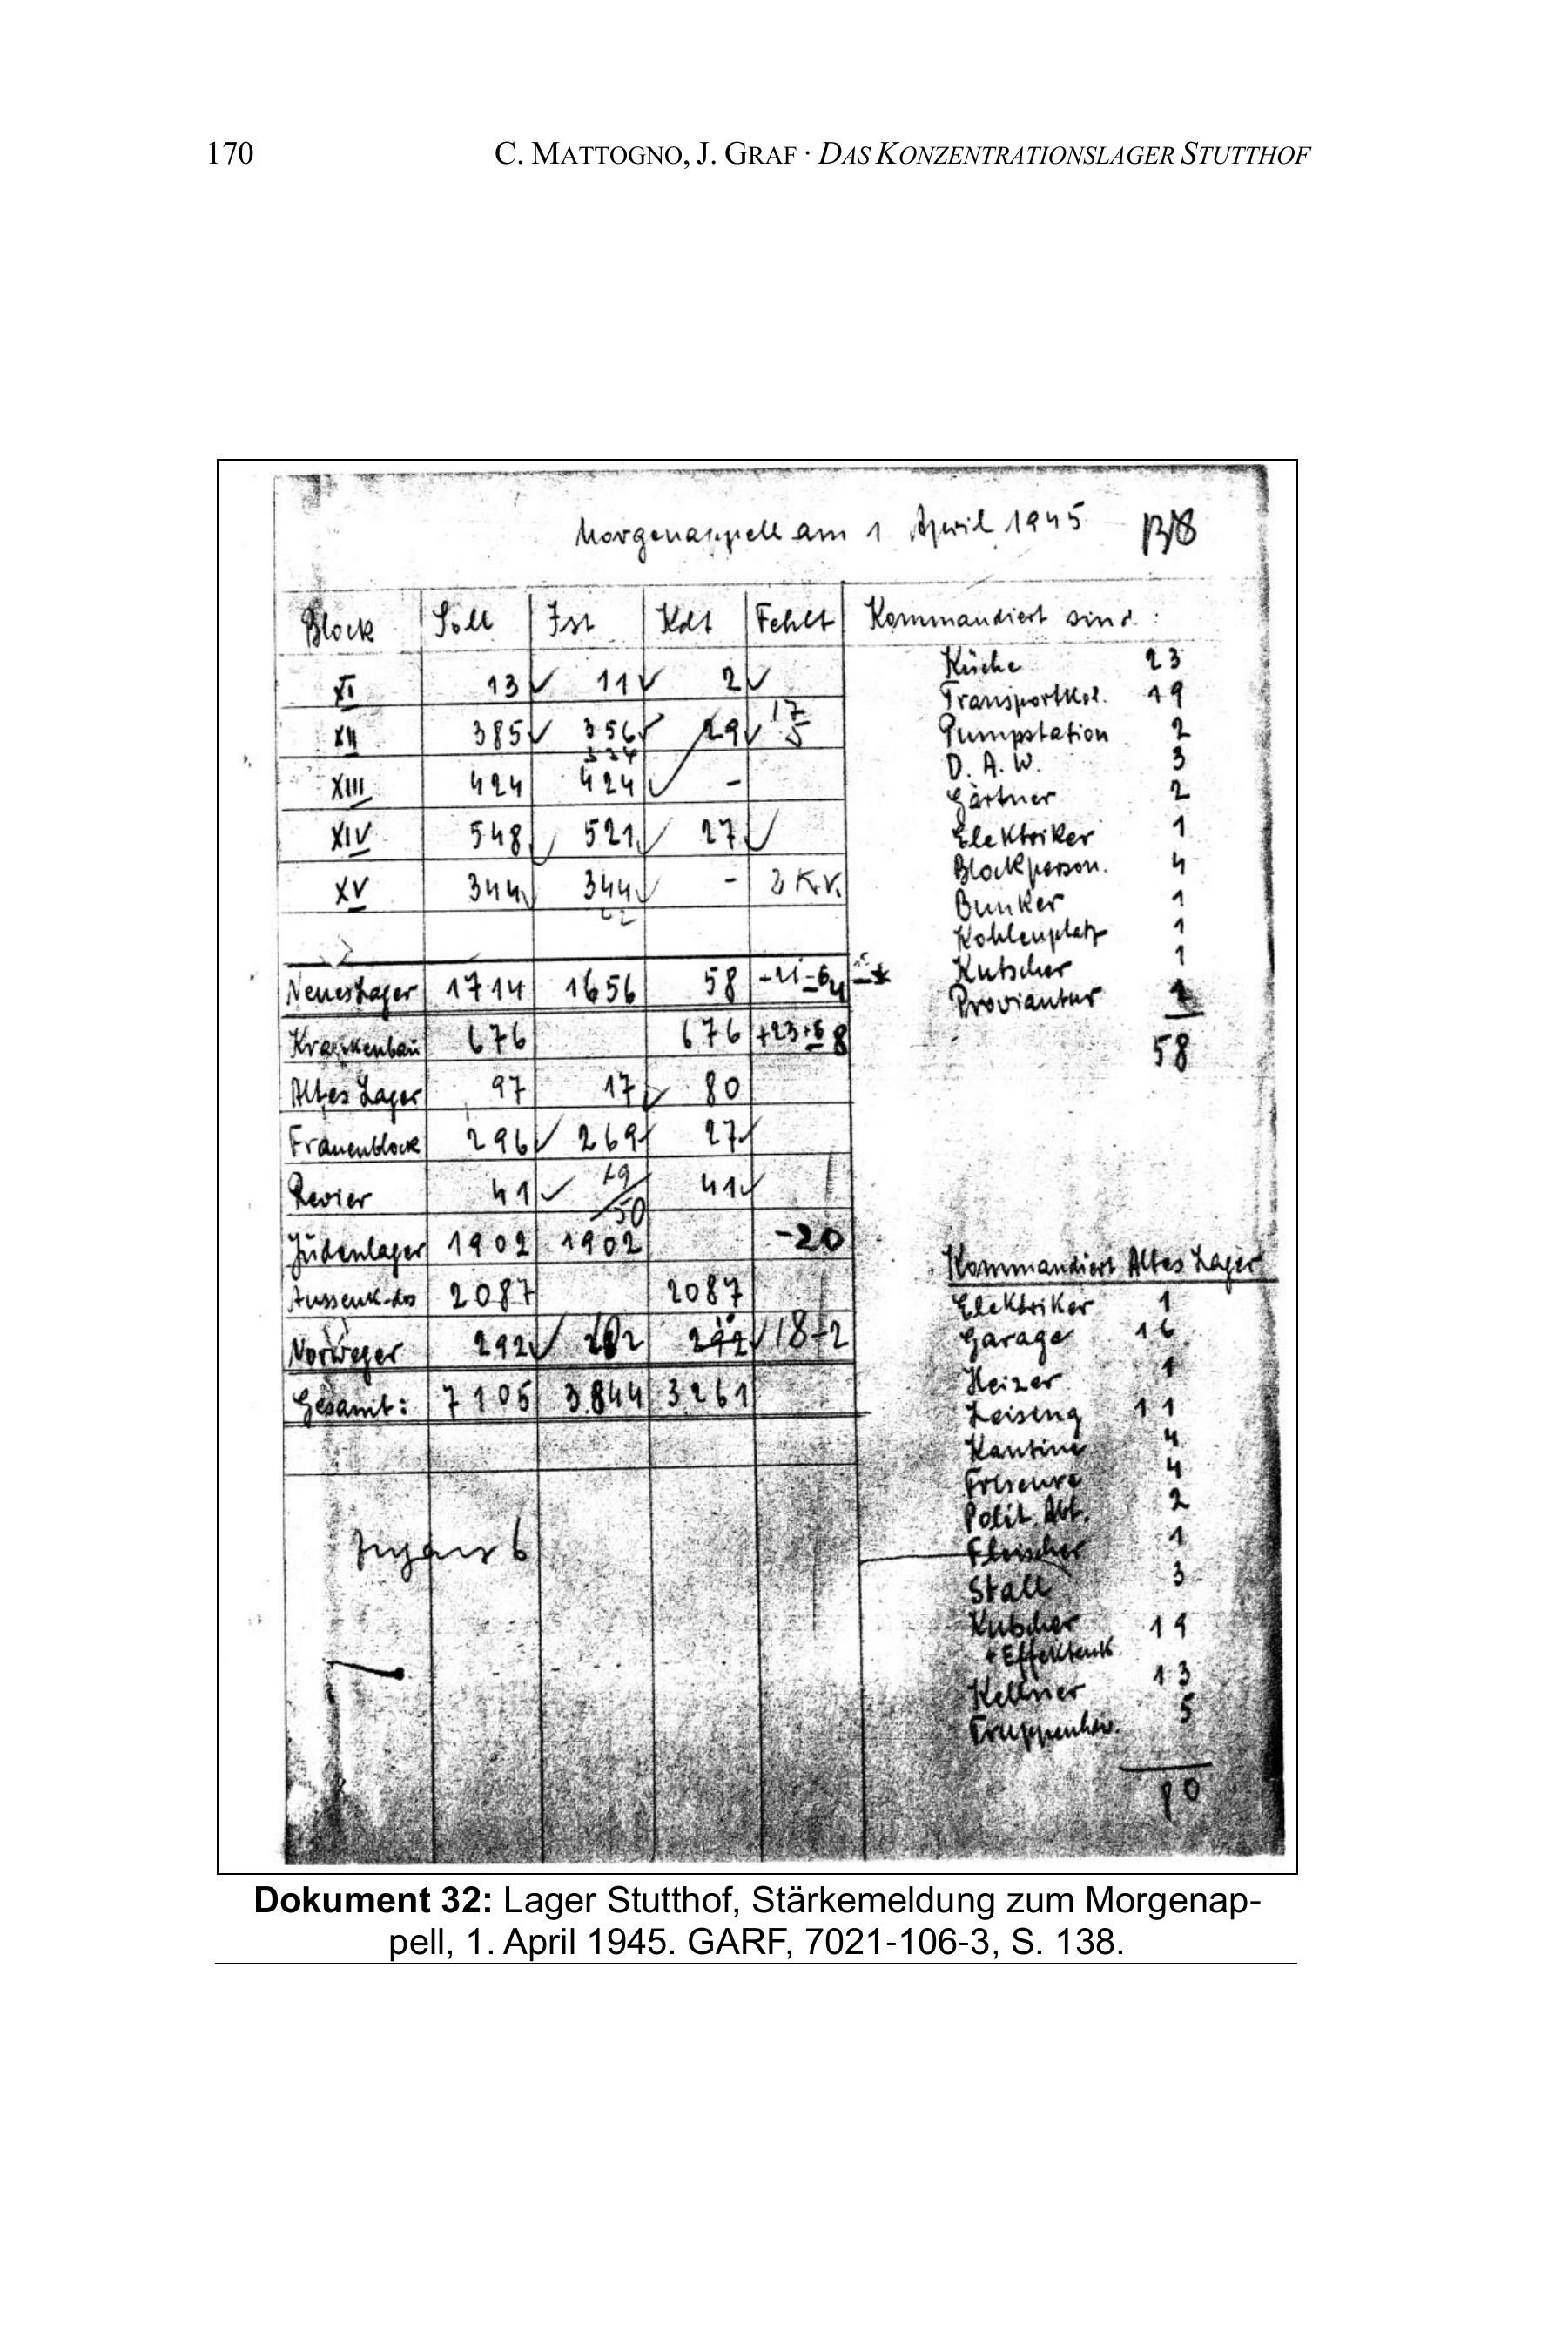 170 C. MATTOGNO, J. GRAF · DAS KONZENTRATIONSLAGER STUTTHOF
Morgenappell am 1 April 1945 138
Block Soll Ist Kdt Fehlt Kommandiert sind :
XI 13 11 2
XII 385 356 29 17 5
334
XIII 424 424 -
XIV 548 521 27
XV 344 344 - 2 K.V.
Neues Lager 1714 1656 58
Krankenbau 676 676
Altes Lager 97 17 80
Frauenblock 296 269 27
Revier 41 41
50
Judenlager 1902 1902 -20
Aussenk-dos 2087 2087
Norweger 292 292 18-2
Gesamt: 7105 3.844 3261
Zugang 6
Küche 23
Transportkol. 19
Pumpstation 2
D. A. W. 3
Gärtner 2
Elektriker 1
Blockperson. 4
Bunker 1
Kohlenplatz 1
Kutscher 1
Proviantur 1
58
Kommandiert Altes Lager
Elektriker 1
Garage 16
Heizer 1
Leising 11
Kantine 4
Friseure 4
Polit. Abt. 2
Fleischer 1
Stall 3
Kutscher 19
+ Effektenk.
Kellner 13
Truppenhw. 5
80
Dokument 32: Lager Stutthof, Stärkemeldung zum Morgenap-
pell, 1. April 1945. GARF, 7021-106-3, S. 138.